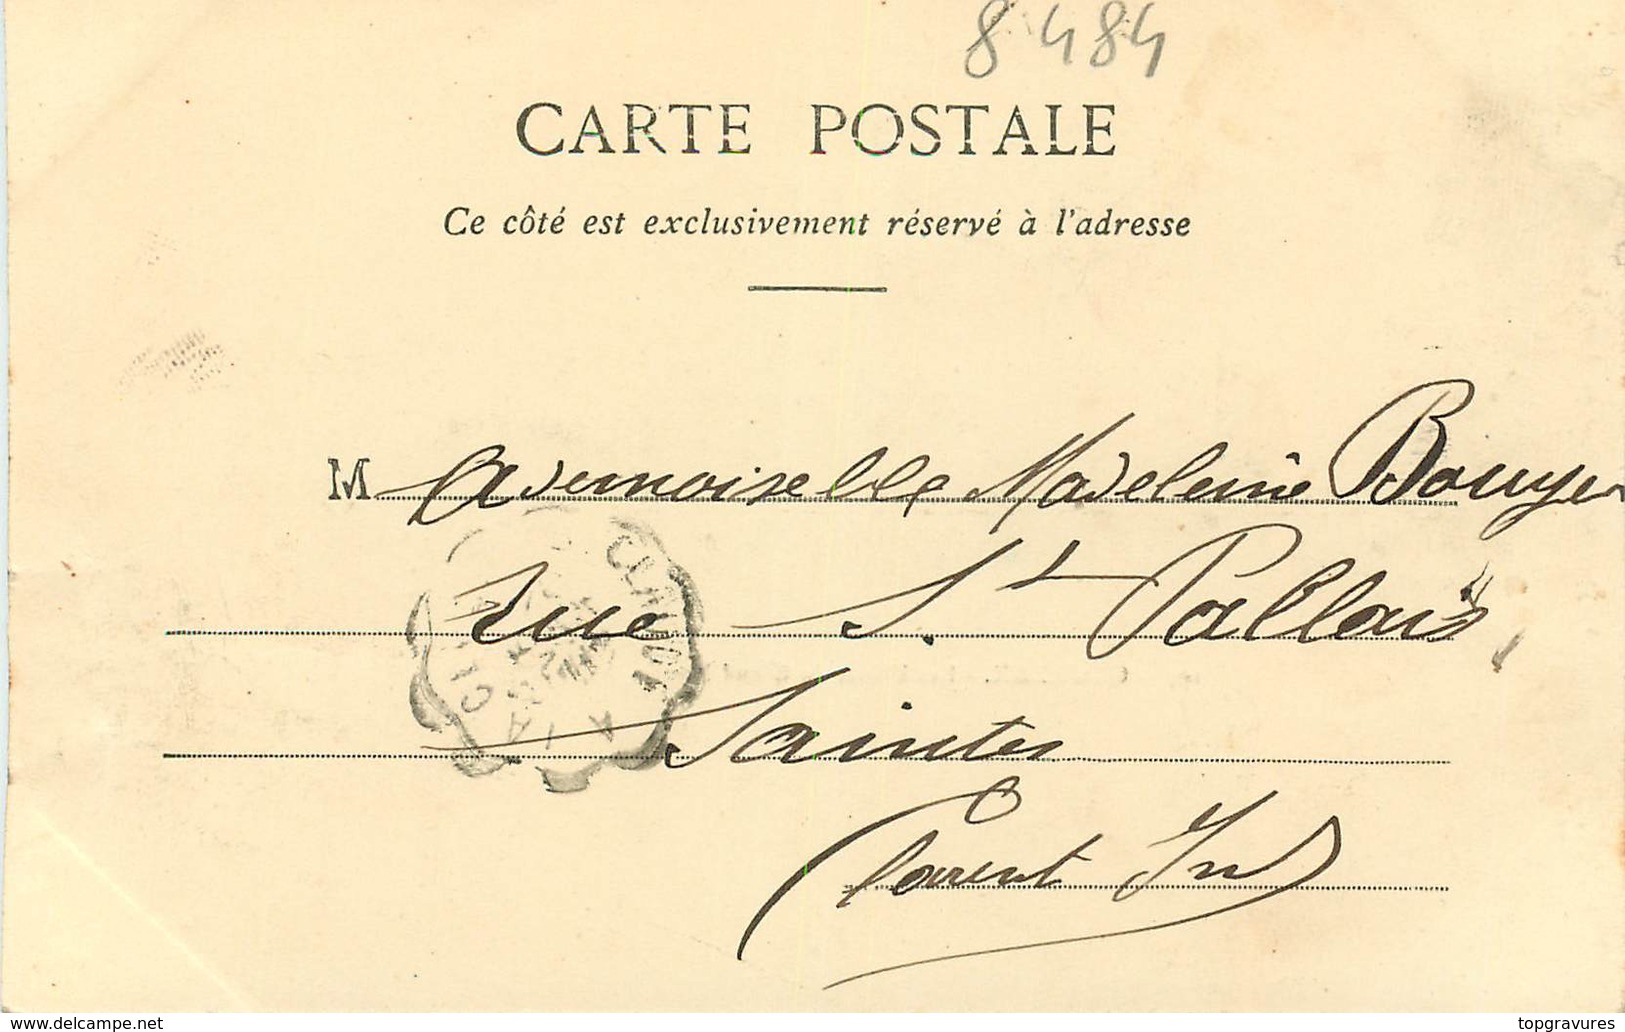 8484
CARTE POSTALE
Ce côté est exclusivement réservé à l'adresse
Mademoiselle Madeleine Bouyer
rue St Pallais
Saintes
Charent Inf
www.delcampe.net
topgravures